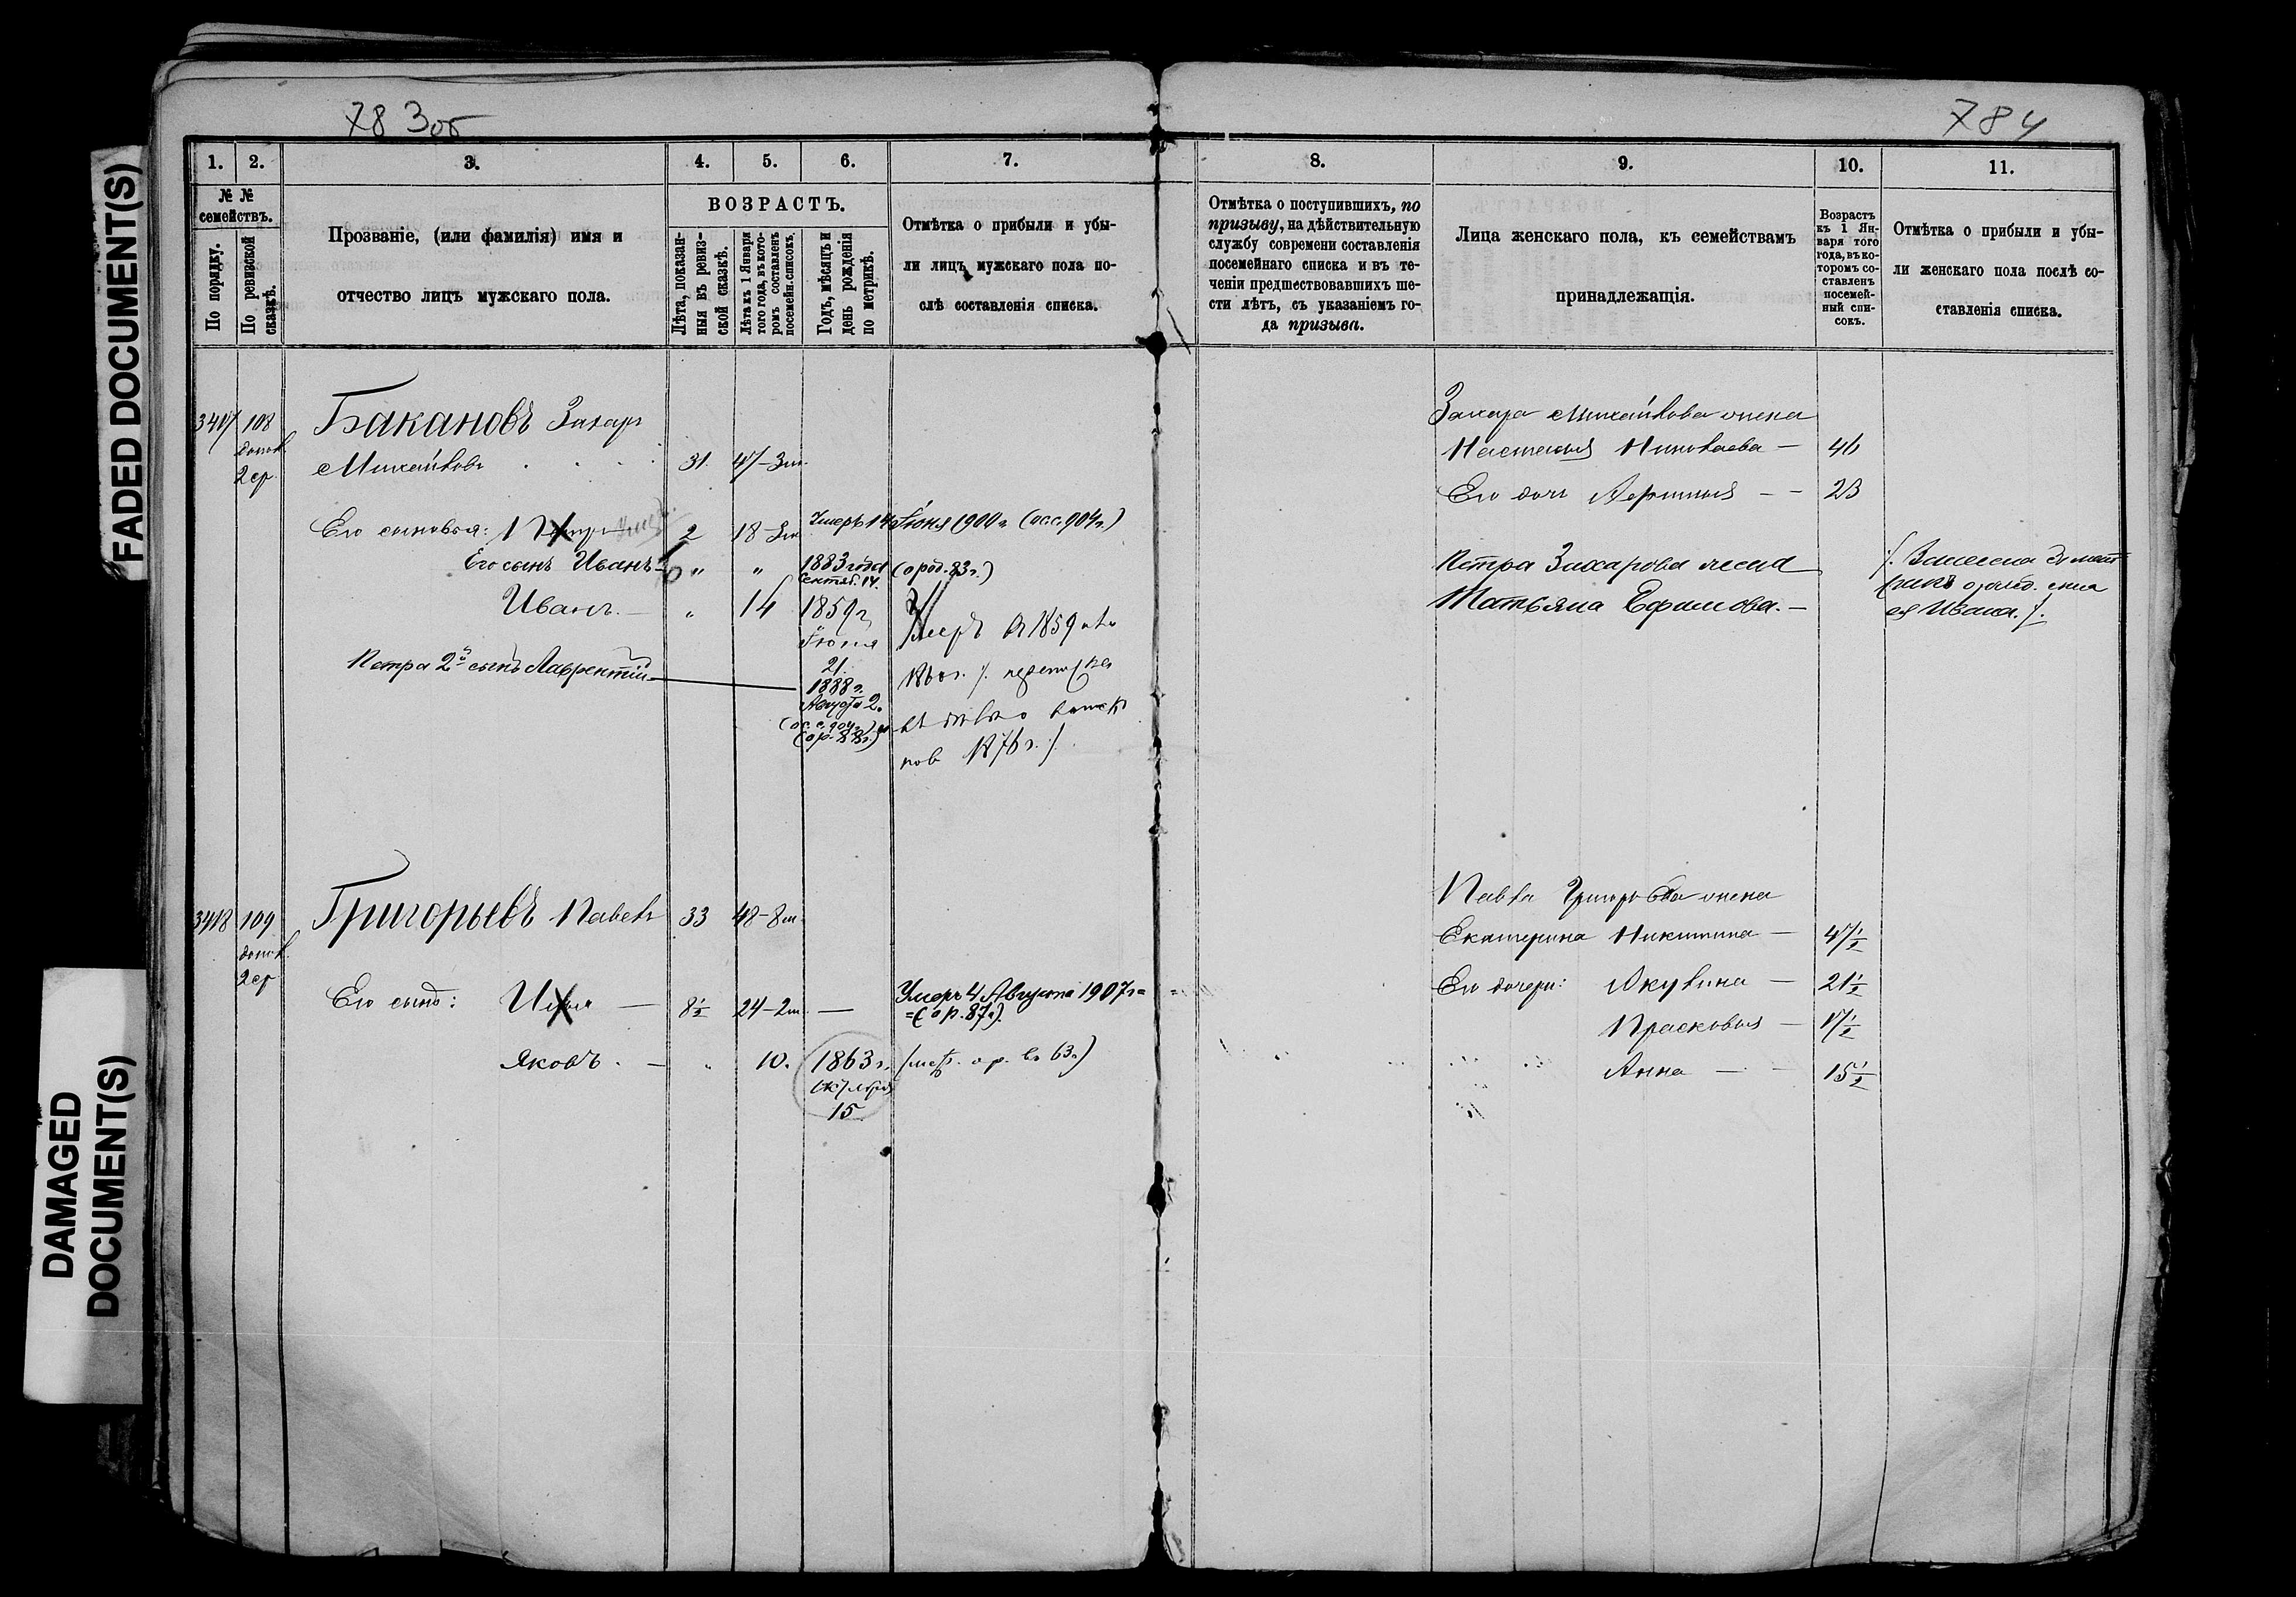 783об
784
FADED DOCUMENT(S)
DAMAGED DOCUMENT(S)
1. 2. 3. 4. 5. 6. 7. 8. 9. 10. 11.
№ №
семействъ.
По порядку.
По ревизской сказкѣ.
Прозваніе, (или фамилія) имя и
отчество лицъ мужскаго пола.
ВОЗРАСТЪ.
Лѣта, показан-
ныя въ ревиз-
ской сказкѣ.
Лѣта къ 1 Января
того года, въ кото-
ромъ составленъ
посемейн. списокъ.
Годъ, мѣсяцъ и
день рожденія
по метрикѣ.
Отмѣтка о прибыли и убы-
ли лицъ мужскаго пола по-
слѣ составленія списка.
Отмѣтка о поступившихъ, по
призыву, на дѣйствительную
службу современи составленія
посемейнаго списка и въ те-
ченіи предшествовавшихъ ше-
сти лѣтъ, съ указаніемъ го-
да призыва.
Лица женскаго пола, къ семействамъ
принадлежащія.
Возрастъ
къ 1 Ян-
варя того
года, въ ко-
торомъ со-
ставленъ
посемей-
ный спи-
сокъ.
Отмѣтка о прибыли и убы-
ли женскаго пола послѣ со-
ставленія списка.
3417 108 Бакановъ Захаръ
допол.
2 ср. Михайловъ 31. 47-3м.
Его сыновья: 1 Петръ 2 18-3м Умеръ 14 Іюня 1900 г. (ос.с. 904 г.)
Его сынъ Иванъ " " 1883 года (о род. 83 г.)
Сентяб. 14.
Иванъ. — " 14 1859 г.
Іюня
21.
Умеръ въ 1859 или
1860 г.
1876 г.
Петра 2й сынъ Лаврентій 1888 г.
Августа 2.
(ос. с. 904 г.)
(о р. 88 г.)
Захара Михайлова жена
Настасья Николаева — 46
Его дочь — — 23
Петра Захарова жена
Татьяна Ефимова. —
ея Ивана.
3418 109 Григорьевъ Павелъ 33 48-8м
допол.
2 ср
Его сынъ: Илья — 8½ 24-2м — Умеръ 4 Августа 1907 г =
=(о р. 87 г.)
Яковъ. — " 10. 1863 г. (мет. о р. въ 63 г.)
Октября
15
Павла Григорьева жена
Екатерина Никитина — 47½
Его дочери: Акулина — 21½
Прасковья — 17½
Анна — 15½